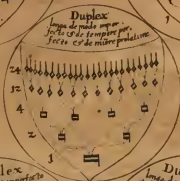 Duplex
longa de modo imper.
fecto & de tempore per.
fecto & de minore prolatione
24
12
4
2
1